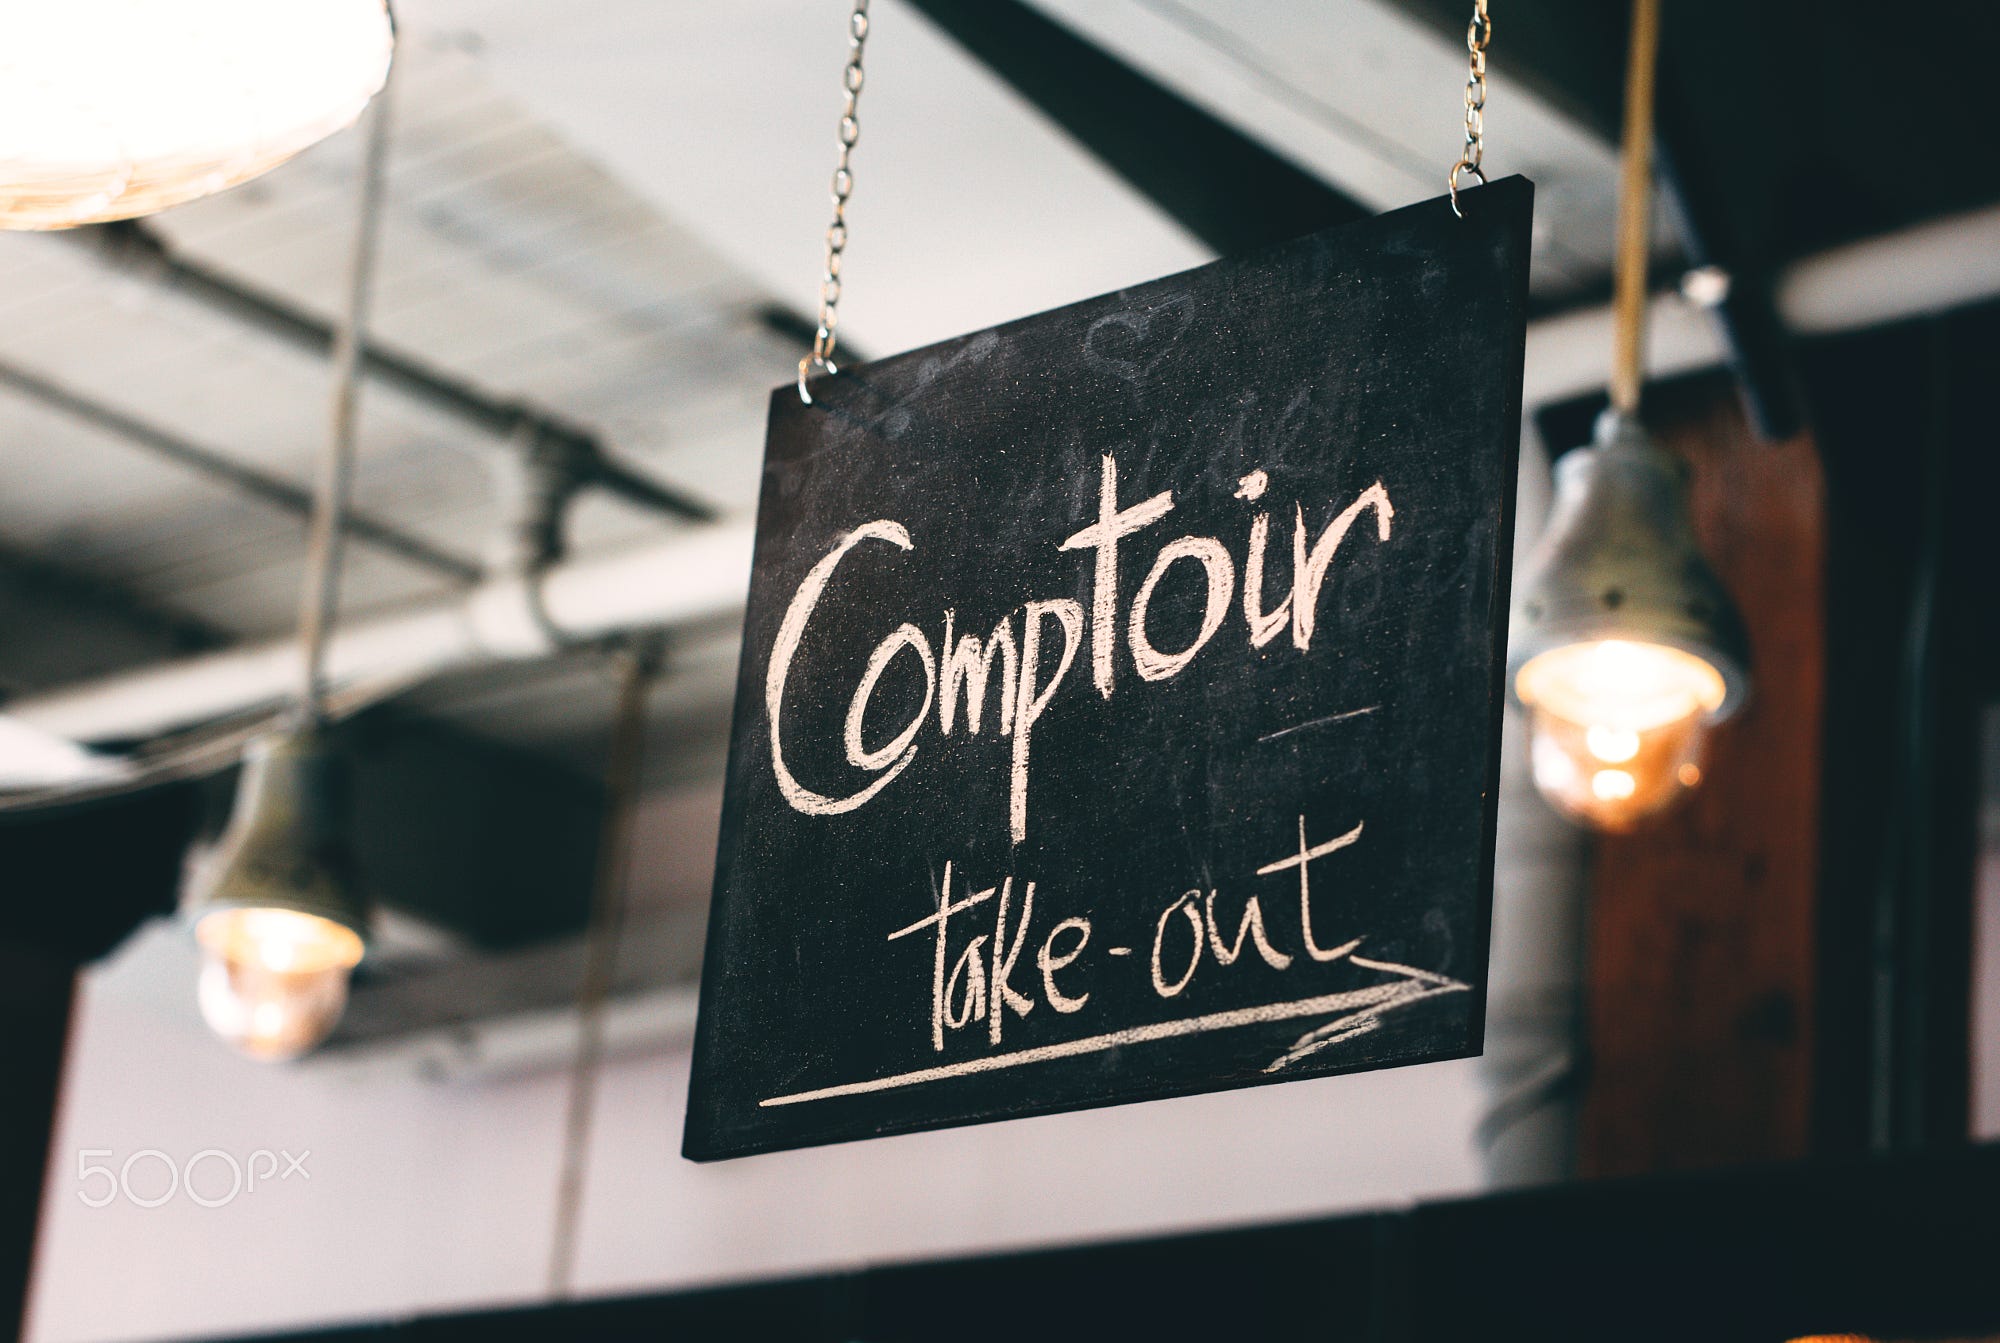 Comptoir
take-out
500px